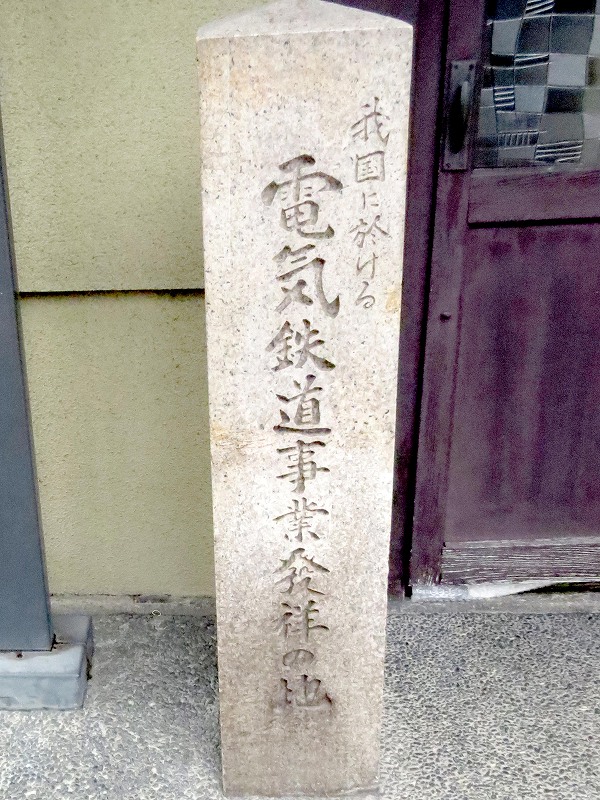 我国に於ける
電気鉄道事業発祥の地